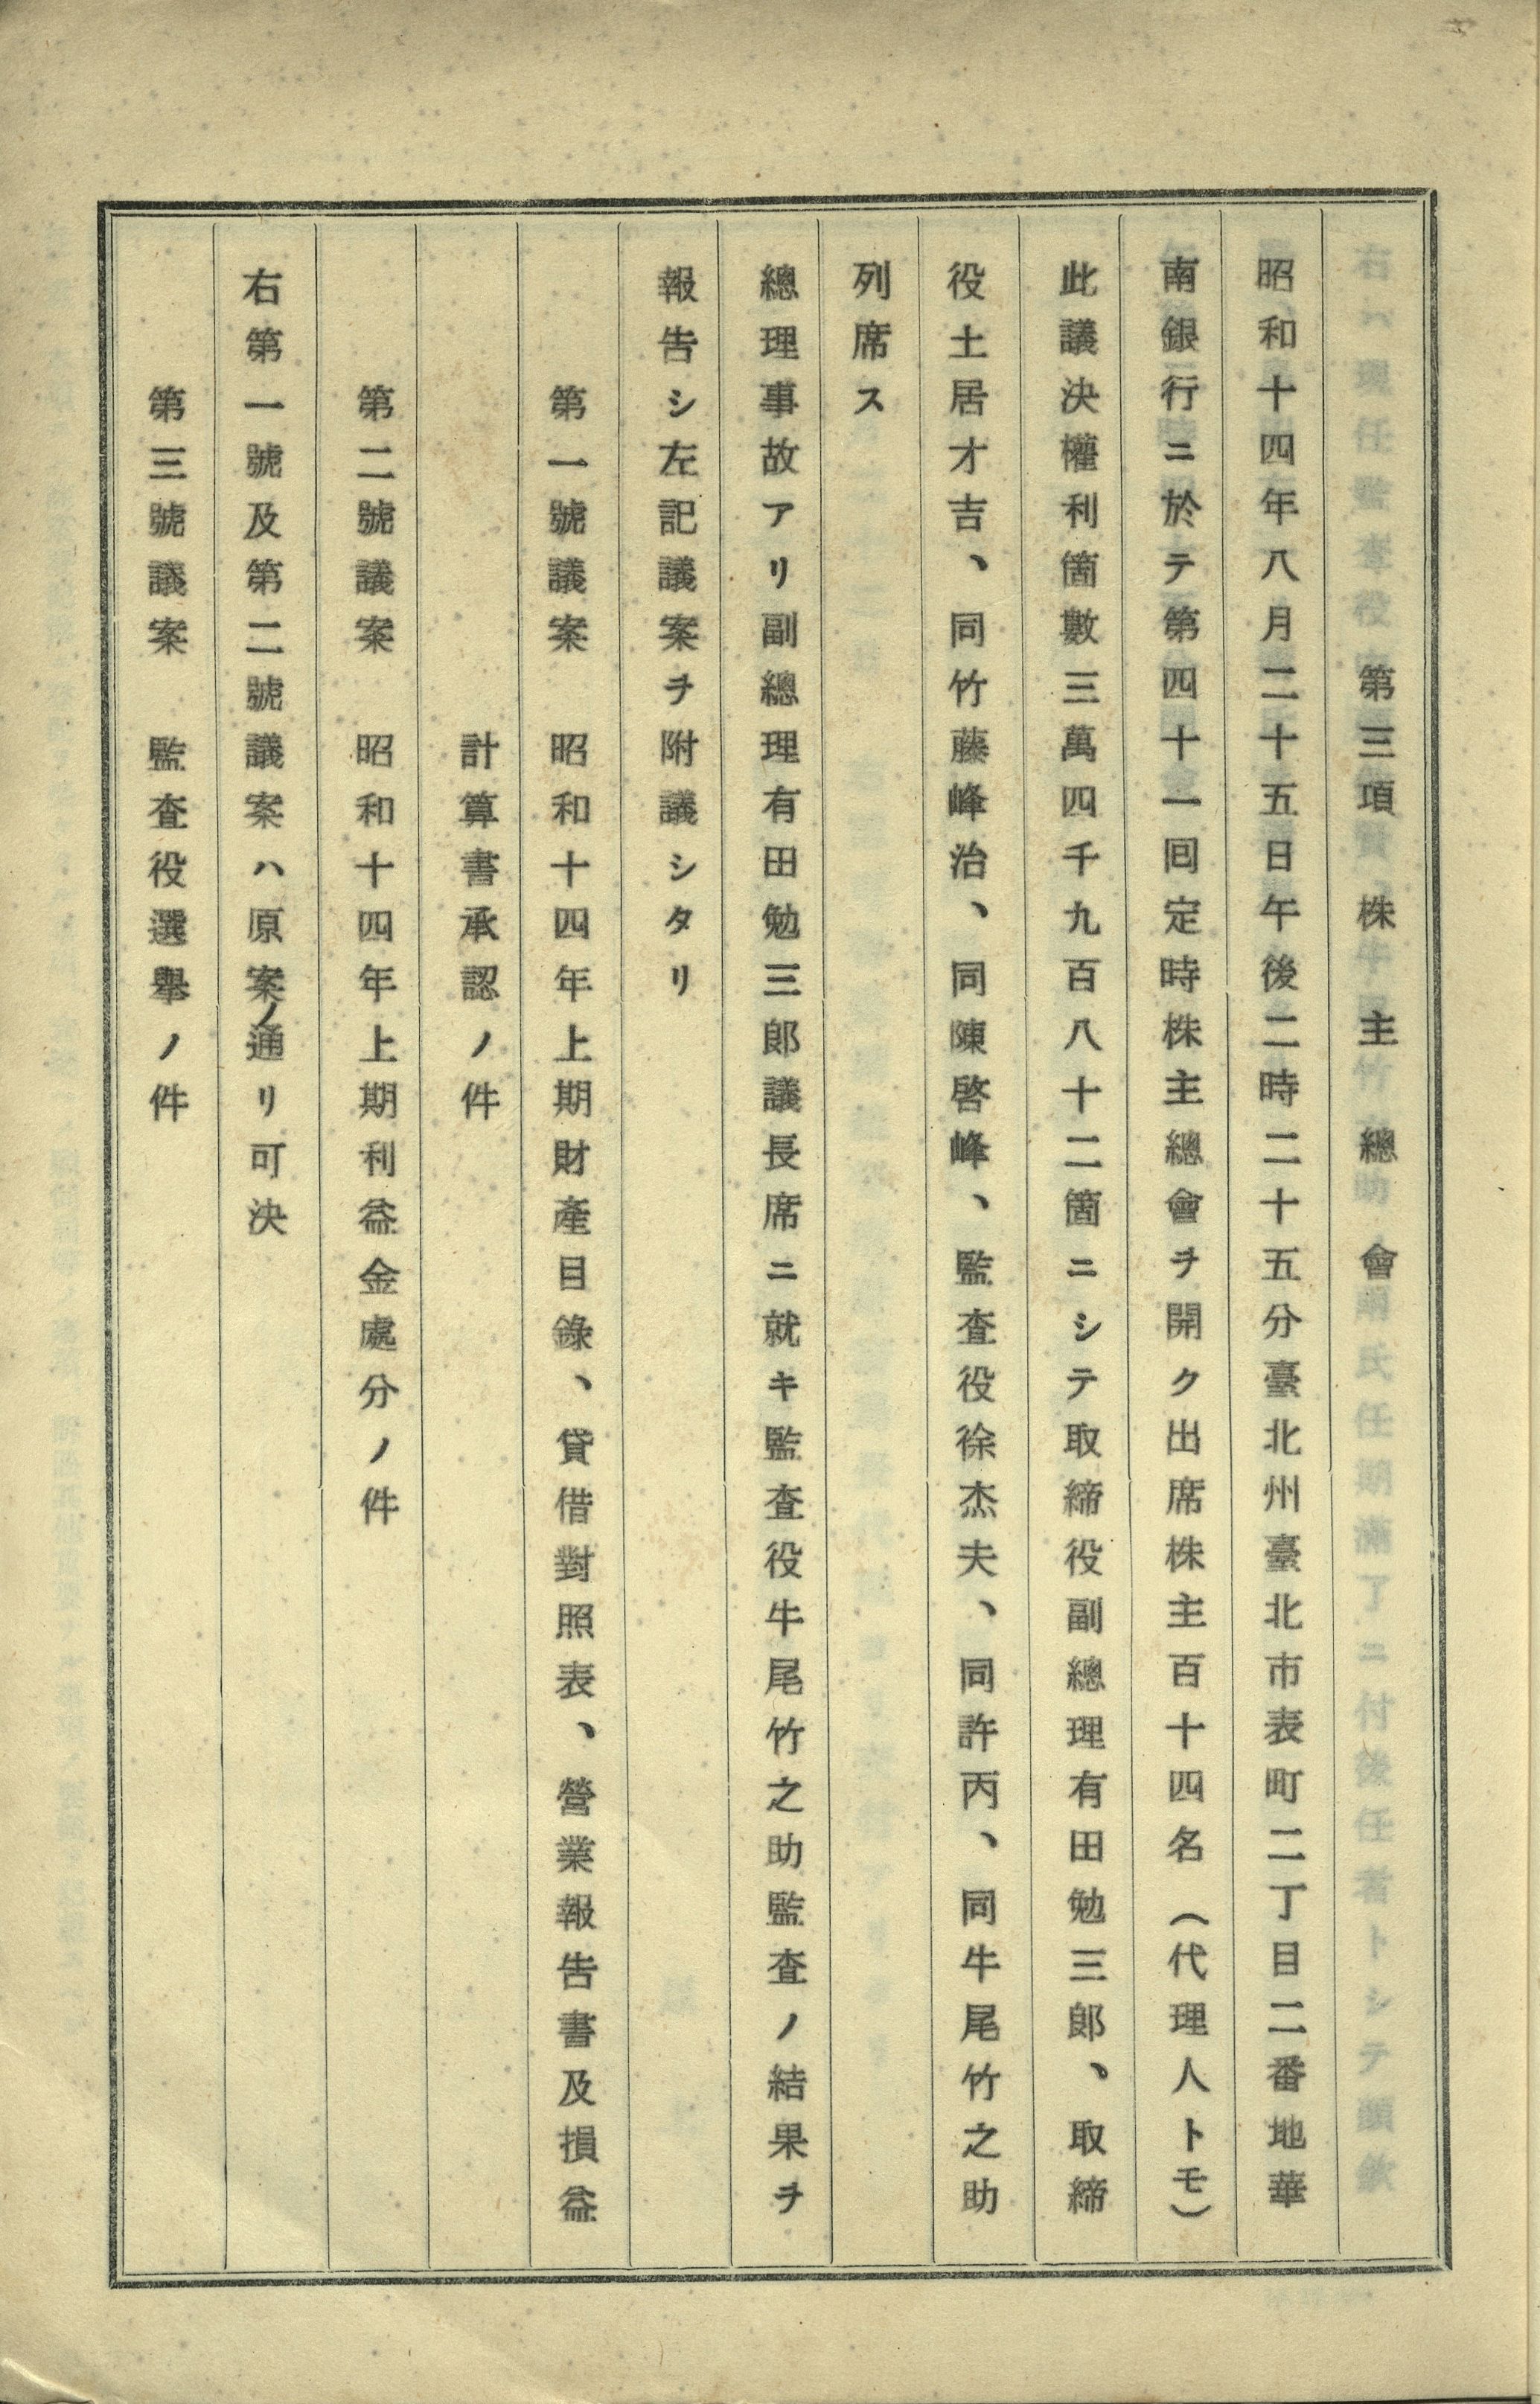 第三項　株主總會
昭和十四年八月二十五日午後二時二十五分臺北州臺北市表町二丁目二番地華
南銀行ニ於テ第四十一囘定時株主總會ヲ開ク出席株主百十四名（代理人トモ）
此議決權利箇數三萬四千九百八十二箇ニシテ取締役副總理有田勉三郞、取締
役土居才吉、同竹藤峰治、同陳啓峰、監査役徐杰夫、同許丙、同牛尾竹之助
列席ス
總理事故アリ副總理有田勉三郞議長席ニ就キ監査役牛尾竹之助監査ノ結果ヲ
報告シ左記議案ヲ附議シタリ
第一號議案　昭和十四年上期財產目錄、貸借對照表、營業報告書及損益
計算書承認ノ件
第二號議案　昭和十四年上期利益金處分ノ件
右第一號及第二號議案ハ原案ノ通リ可決
第三號議案　監査役選擧ノ件